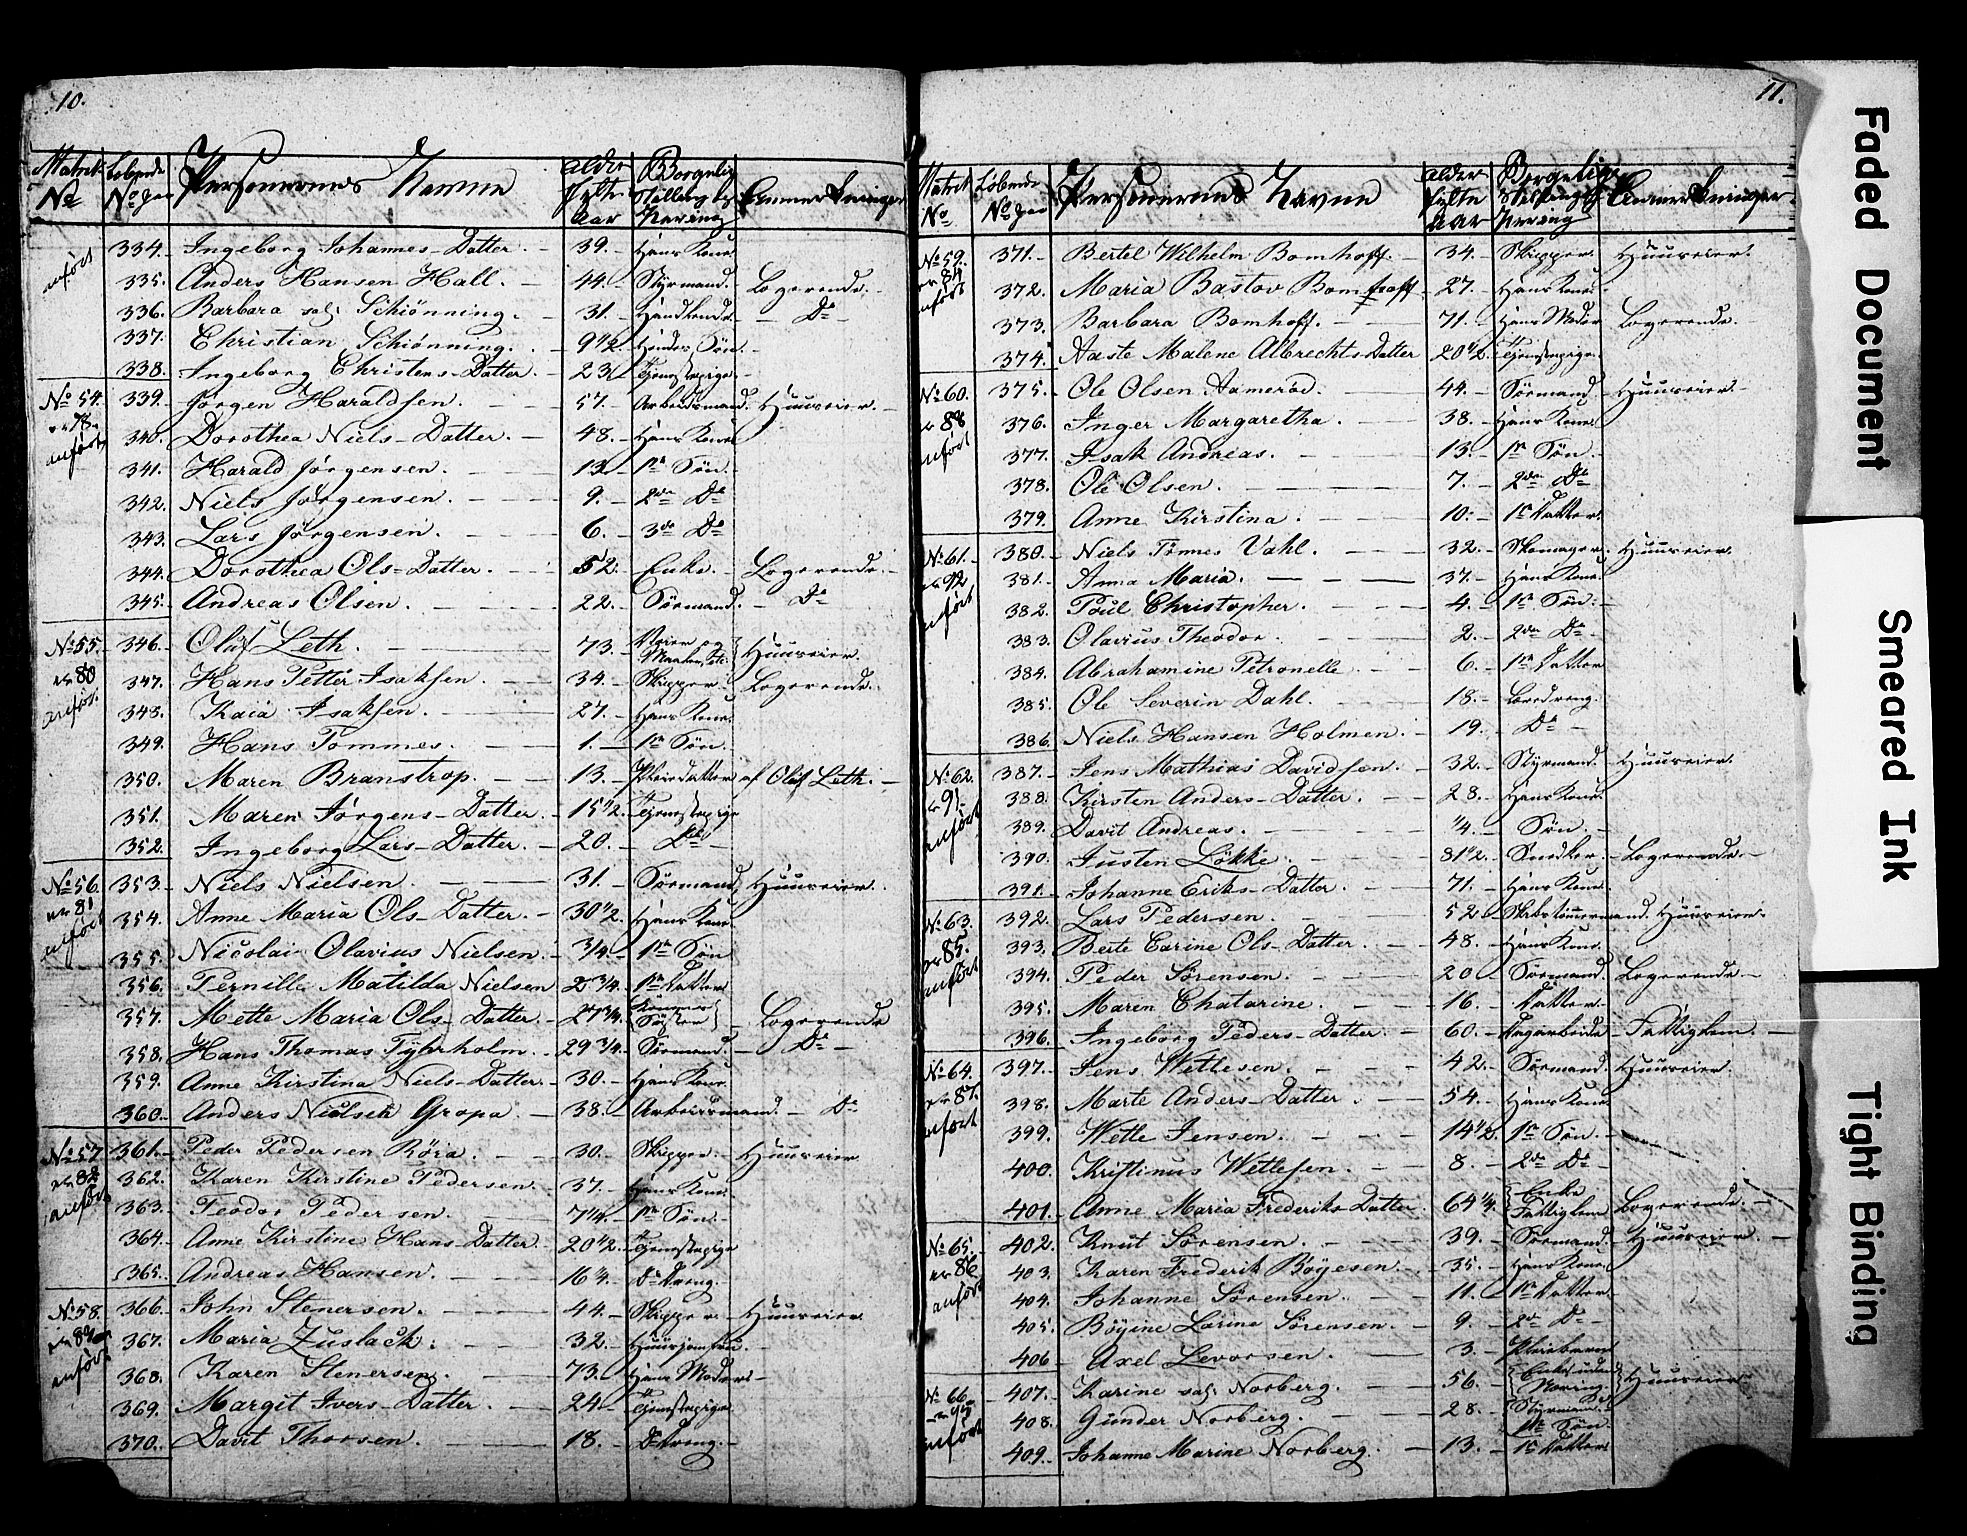 10.
Matrik No Löbende No Personernes Navne Alder fylte Aar Borgerlig Stilling og Næring Anmerkninger
anfört 334. Ingeborg Johannes-Datter. 39. Hans Kone.
335. Anders Hansen Hall. 44. Styrmand. Logerende.
336. Barbara sal: Schiönning. 31. D°
337. Christian Schiönning. 9 1/2. Hendes Sön.
338. Ingeborg Christens-Datter. 23. Tjenestepige.
No 54. 339. Jörgen Haraldsen. 57. Arbeidsmand. Huuseier.
78. 340. Dorothea Niels-Datter. 48. Hans Kone
anfört 341. Harald Jörgensen. 13. 1ste Sön.
342. Niels Jörgensen. 9. 2den D°
343. Lars Jörgensen. 6. 3die D°
344. Dorothea Ols-Datter. 52. Enke. Logerende.
345. Andreas Olsen. 22. Sömand. D°
No 55. 346. Oluf Leth. 73. Veier og Maaler, etc. Huuseier.
80 347. Hans Petter Isaksen. 34. Skipper. Logerende.
anfört. 348. Kaia Isaksen. 27. Hans Kone.
349. Hans Tommes. 1. 1ste Sön.
350. Maren Branstrop. 13. Pleiedatter af Oluf Leth.
351. Maren Jörgens-Datter. 15 1/2. Tjenestepige
352. Ingeborg Lars-Datter. 20. D°
No 56. 353. Niels Nielsen. 31. Sömand. Huuseier.
81 354. Anne Maria Ols-Datter. 30 1/2. Hans Kone.
anfört 355. Nicolai Olavius Nielsen. 3/4. 1ste Sön
356. Pernille Matilda Nielsen 2 3/4. 1ste Datter
357. Mette Maria Ols-Datter. 27 3/4. Konens Söster Logerende
358. Hans Thomas Tyhrholm. 29 3/4. Sömand. D°
359. Anne Kirstina Niels-Datter. 30. Hans Kone.
360. Anders Nielsen Gropa. 38. Arbeidsmand. D°
No 57 361. Peder Pedersen Röra. 30. Skipper. Huuseier
82 362. Karen Kirstine Pedersen. 37. Hans Kone.
anfört 363. Teodor Pedersen. 7 1/4. 1ste Sön.
364. Anne Kirstine Hans-Datter. 20 1/2. Tjenestepige
365. Andreas Hansen. 16 1/4. D° Dreng.
No 58. 366. John Stenersen. 44. Skipper. Huuseier
367. Maria Zuslack. 32. Huusjomfru.
anfört 368. Karen Stenersen. 73. Hans Moder.
369. Margit Ivers-Datter. 24 Tjenestepige
370. Davit Thorsen. 18. D° Dreng.
11.
Matrik No Löbende No Personernes Navne Alder fylte Aar Borgerlig Stilling og Næring Anmerkninger
No 59. 371. Bertel Wilhelm Bomhoff. 34. Skipper. Huuseier.
84 372. Maria Bastov Bomhoff 27. Hans Kone.
anfört 373. Barbara Bomhoff. 71. Hans Moder Logerende.
374. Aaste Malene Albrechts-Datter 20 1/2. Tjenestepige.
No 60. 375. Ole Olsen Aameröd. 44. Sömand. Huuseier
88 376. Inger Margaretha. 38. Hans Kone.
anfört 377. Isak Andreas. 13. 1ste Sön.
378. Ole Olsen. 7. 2den D°
379. Anne Kirstina. 10. 1ste Datter.
No 61. 380. Niels Tönnes Vahl. 32. Skomager. Huuseier.
92 381. Anna Maria. 37. Hans Kone.
anfört 382. Poul Christopher. 4. 1ste Sön.
383. Olavius Theodor. 2. 2den D°
384. Abrahamine Petronelle 6. 1ste Datter
385. Ole Severin Dahl. 18. Læredreng.
386. Niels Hansen Holmen. 19. D°
No 62. 387. Jens Mathias Davidsen. 32. Styrmand. Huuseier.
91. 388. Kirsten Anders-Datter. 28. Hans Kone.
anfört 389. Davit Andreas. 1/4. Sön.
390. Justen Lökke. 81 1/2. Snedker. Logerende.
391. Johanne Eriks-Datter. 71. Hans Kone.
No 63. 392. Lars Pedersen. 52. Skibstömmermand. Huuseier.
85. 393. Berte Carine Ols-Datter. 48. Hans Kone.
anfört 394. Peder Sörensen. 20 Sömand. Logerende
395. Maren Chatarine. 16. Datter.
396. Ingeborg Peders-Datter. 60. Fattiglem.
No 64. 397. Jens Wettesen. 42. Sömand. Huuseier.
87. 398. Marte Anders-Datter. 54. Hans Kone
anfört 399. Wette Jensen. 14 1/2. 1ste Sön.
400. Kristinus Wettesen. 8. 2den D°
401. Anne Maria Frederiks Datter. 64 1/4. Enke Fattiglem Logerende.
No 65. 402. Knut Sörensen. 39. Sömand. Huuseier.
86 403. Karen Frederik Böyesen. 35. Hans Kone.
anfört 404. Johanne Sörensen. 11. 1ste Datter.
405. Böyine Larine Sörensen. 9. 2den D°
406 Axel Levorsen. 3. Pleiebarn
No 66. 407. Karine sal: Norberg. 56. Enke uden Næring. Huuseier
408. Gunder Norberg. 28. Styrmand. 1ste Sön.
anfört 409. Johanne Marine Norberg. 13. 1ste Datter
Faded Document
Smeared Ink
Tight Binding